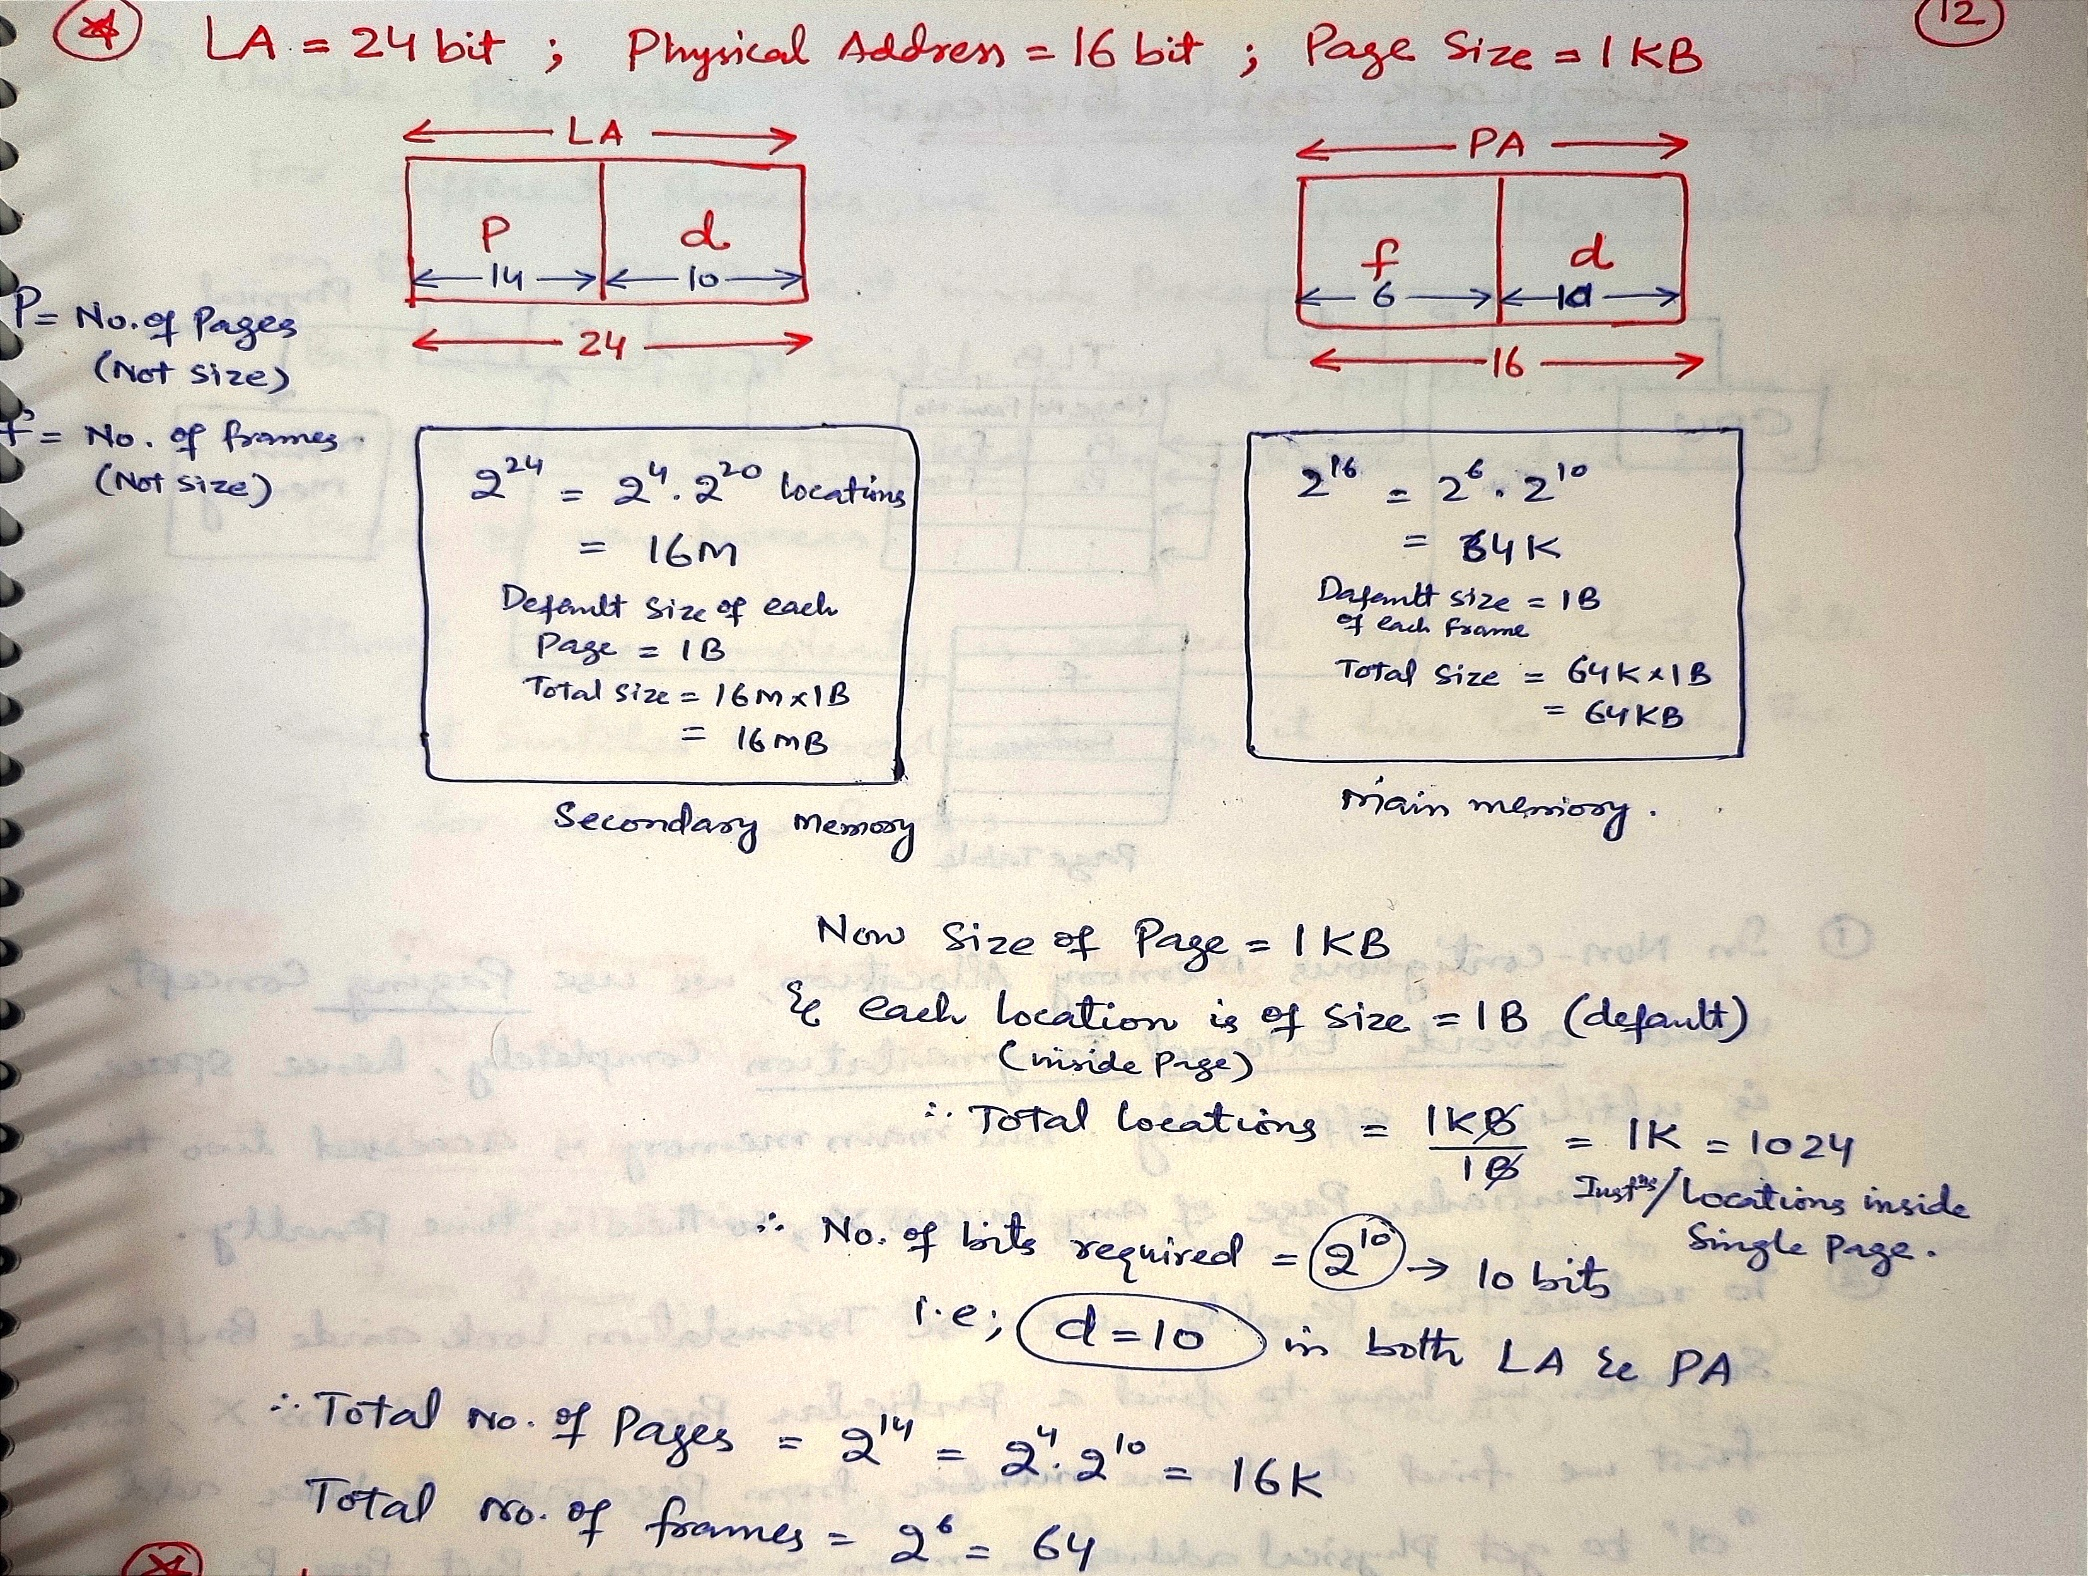 LA = 24 bit ; Physical Address = 16 bit ; Page Size = 1 KB
12
LA
PA
P d
f d
14 10
6 10
24
16
P = No. of Pages
(Not size)
f = No. of frames
(Not size)
2^24 = 2^4 . 2^20 locations
= 16M
Default size of each
Page = 1B
Total size = 16M x 1B
= 16MB
Secondary memory
2^16 = 2^6 . 2^10
= 64K
Default size = 1B
of each frame
Total size = 64K x 1B
= 64KB
main memory.
Now Size of Page = 1 KB
& each location is of size = 1B (default)
(inside Page)
∴ Total locations = 1KB / 1B = 1K = 1024
Instns/locations inside
Single Page.
∴ No. of bits required = 2^10 → 10 bits
i.e; d=10 in both LA & PA
∴ Total No. of Pages = 2^14 = 2^4 . 2^10 = 16K
Total no. of frames = 2^6 = 64